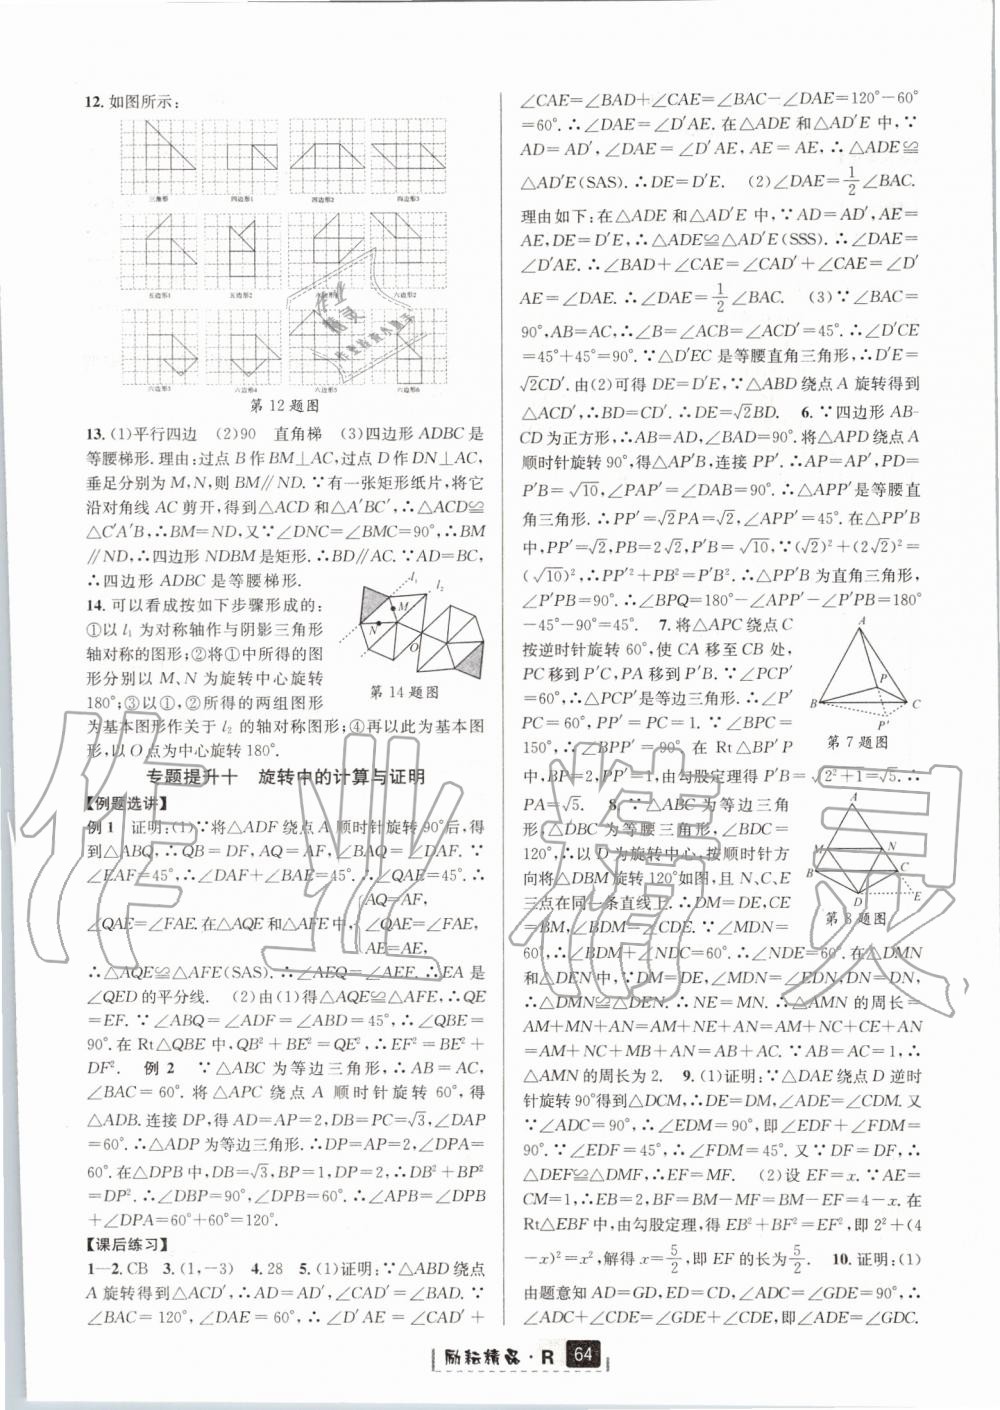 12. 如图所示:
三角形 四边形1 四边形2 四边形3
五边形1 五边形2 六边形1 六边形2
六边形3 六边形4 六边形5 六边形6
第12题图
13. (1)平行四边 (2)90 直角梯 (3)四边形 ADBC 是
等腰梯形. 理由:过点 B 作 BM⊥AC,过点 D 作 DN⊥AC,
垂足分别为 M,N,则 BM∥ND. ∵有一张矩形纸片,将它
沿对角线 AC 剪开,得到△ACD 和△A′BC′,∴△ACD≌
△C′A′B,∴BM=ND,又∵∠DNC=∠BMC=90°,∴BM
∥ND,∴四边形 NDBM 是矩形. ∴BD∥AC. ∵AD=BC,
∴四边形 ADBC 是等腰梯形.
14. 可以看成按如下步骤形成的:
①以 l₁ 为对称轴作与阴影三角形
轴对称的图形;②将①中所得的图
形分别以 M、N 为旋转中心旋转
180°;③以①,②所得的两组图形
为基本图形作关于 l₂ 的轴对称图形;④再以此为基本图
形,以 O 点为中心旋转 180°.
l₁ l₂ M N O
第14题图
专题提升十 旋转中的计算与证明
【例题选讲】
例 1 证明:(1)∵将△ADF 绕点 A 顺时针旋转 90°后,得
到△ABQ,∴QB=DF,AQ=AF,∠BAQ=∠DAF. ∵
∠EAF=45°,∴∠DAF+∠BAE=45°. ∴∠QAE=45°. ∴
∠QAE=∠FAE. 在△AQE 和△AFE 中, { AQ=AF, ∠QAE=∠FAE, AE=AE,
∴△AQE≌△AFE(SAS). ∴∠AEQ=∠AEF. ∴EA 是
∠QED 的平分线. (2)由(1)得△AQE≌△AFE,∴QE
=EF. ∵∠ABQ=∠ADF=∠ABD=45°,∴∠QBE=
90°. 在 Rt△QBE 中,QB²+BE²=QE²,∴EF²=BE²+
DF². 例 2 ∵△ABC 为等边三角形,∴AB=AC,
∠BAC=60°. 将△APC 绕点 A 顺时针旋转 60°,得
△ADB. 连接 DP,得 AD=AP=2,DB=PC=√3,∠DAP
=60°. ∴△ADP 为等边三角形. ∴DP=AP=2,∠DPA=
60°. 在△DPB 中,DB=√3,BP=1,DP=2,∴DB²+BP²
=DP². ∴∠DBP=90°,∠DPB=60°. ∴∠APB=∠DPB
+∠DPA=60°+60°=120°.
【课后练习】
1—2. CB 3. (1,−3) 4. 28 5. (1)证明:∵△ABD 绕点
A 旋转得到△ACD′,∴AD=AD′,∠CAD′=∠BAD. ∵
∠BAC=120°,∠DAE=60°,∴∠D′AE=∠CAD′+
∠CAE=∠BAD+∠CAE=∠BAC−∠DAE=120°−60°
=60°. ∴∠DAE=∠D′AE. 在△ADE 和△AD′E 中,∵
AD=AD′,∠DAE=∠D′AE,AE=AE,∴△ADE≌
△AD′E(SAS). ∴DE=D′E. (2)∠DAE=1/2∠BAC.
理由如下:在△ADE 和△AD′E 中,∵AD=AD′,AE=
AE,DE=D′E,∴△ADE≌△AD′E(SSS). ∴∠DAE=
∠D′AE. ∴∠BAD+∠CAE=∠CAD′+∠CAE=∠D′
AE=∠DAE. ∴∠DAE=1/2∠BAC. (3)∵∠BAC=
90°,AB=AC,∴∠B=∠ACB=∠ACD′=45°. ∴∠D′CE
=45°+45°=90°. ∵△D′EC 是等腰直角三角形,∴D′E=
√2CD′. 由(2)可得 DE=D′E,∵△ABD 绕点 A 旋转得到
△ACD′,∴BD=CD′. ∴DE=√2BD. 6. ∵四边形 AB-
CD 为正方形,∴AB=AD,∠BAD=90°. 将△APD 绕点 A
顺时针旋转 90°,得△AP′B,连接 PP′. ∴AP=AP′,PD=
P′B=√10,∠PAP′=∠DAB=90°. ∴△APP′是等腰直
角三角形. ∴PP′=√2PA=√2,∠APP′=45°. 在△PP′B
中,PP′=√2,PB=2√2,P′B=√10,∵(√2)²+(2√2)²=
(√10)²,∴PP′²+PB²=P′B². ∴△PP′B 为直角三角形,
∠P′PB=90°. ∴∠BPQ=180°−∠APP′−∠P′PB=180°
−45°−90°=45°. 7. 将△APC 绕点 C
按逆时针旋转 60°,使 CA 移至 CB 处,
PC 移到 P′C,PA 移到 P′B. ∵∠PCP′
=60°,∴△PCP′是等边三角形. ∴∠P′
PC=60°,PP′=PC=1. ∵∠BPC=
150°,∴∠BPP′=90°. 在 Rt△BP′P
中,BP=2,由勾股定理得 P′B=√(2²+1)=√5. ∴
PA=√5.
A B P C P′
第7题图
8. ∵△ABC 为等边三角
形,△DBC 为等腰三角形,∠BDC=
120°,∴以 D 为旋转中心,按顺时针方
向将△DBM 旋转 120°如图,且 N、C、E
三点在同一条直线上. ∴DM=DE,CE
=BM,∠BDM=∠CDE. ∵∠MDN=
60°,∴∠BDM+∠NDC=60°. ∴∠NDE=60°. 在△DMN
和△DEN 中,∵DM=DE,∠MDN=∠EDN,DN=DN,
∴△DMN≌△DEN. ∴NE=MN. ∴△AMN 的周长=
AM+MN+AN=AM+NE+AN=AM+NC+CE+AN
=AM+NC+MB+AN=AB+AC=2. ∴
△AMN 的周长为 2.
A M N B C D E
第8题图
9. (1)证明:∵△DAE 绕点 D 逆时
针旋转 90°得到△DCM,∴DE=DM,∠ADE=∠CDM. 又
∵∠ADC=90°,∴∠EDM=90°,即∠EDF+∠FDM=
90°. ∵∠EDF=45°,∴∠FDM=45°. 又∵DF=DF,∴
△DEF≌△DMF,∴EF=MF. (2)设 EF=x. ∵AE=
CM=1,∴EB=2,BF=BM−MF=BM−EF=4−x. 在
Rt△EBF 中,由勾股定理,得 EB²+BF²=EF²,即 2²+(4
−x)²=x²,解得 x=5/2,即 EF 的长为 5/2. 10. 证明:(1)
由题意知 AD=GD,ED=CD,∠ADC=∠GDE=90°,∴
∠ADC+∠CDE=∠GDE+∠CDE,即∠ADE=∠GDC.
励耘精品·R 64
作业精灵